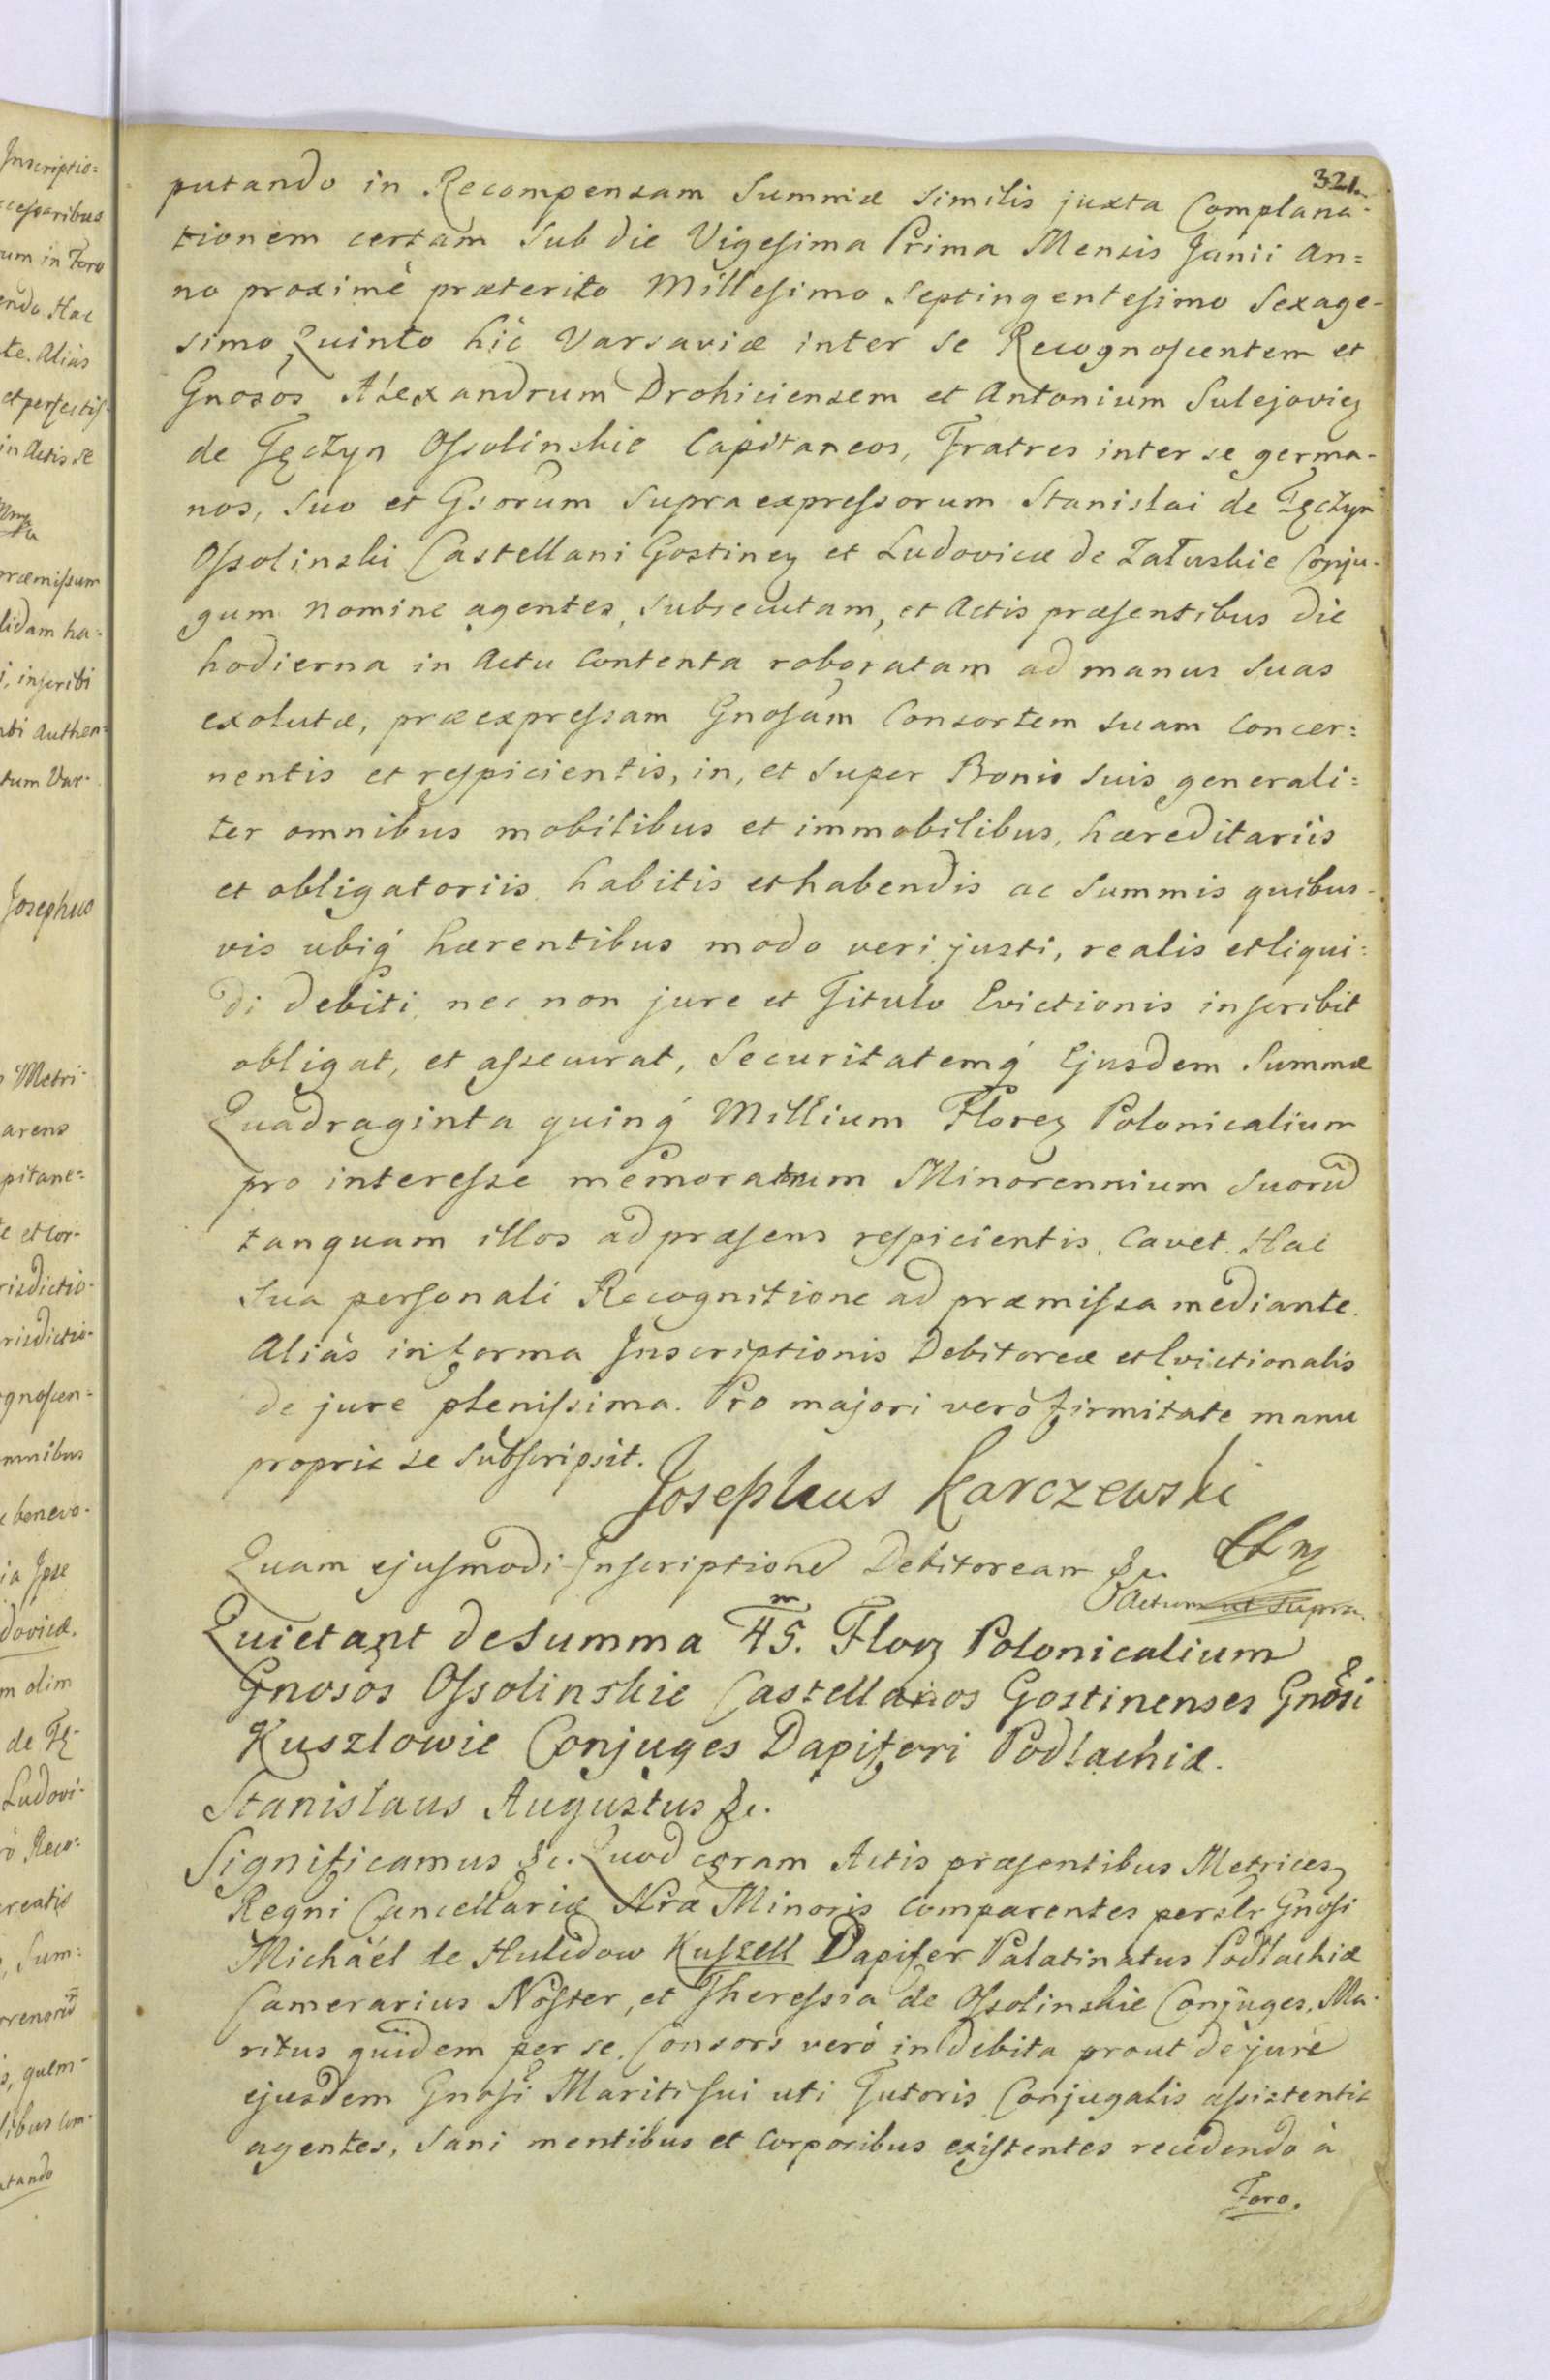 321.
putando in Recompensam Summæ similis juxta Complana-
tionem certam sub die Vigesima Prima Mensis Junii An=
no proximè præterito Millesimo Septingentesimo Sexage-
simo Quinto hic Varsaviæ inter se Recognoscentem et
Gnosos Alexandrum Drohiciensem et Antonium Sulejovien
de Tęczyn Ossolinskie Capitaneos, Fratres inter se germa-
nos, suo et Gsorum supra expressorum Stanislai de Tęczyn
Ossolinski Castellani Gostinen et Ludovicæ de Załuskie Conju-
gum nomine agentes, subsecutam, et Actis præsentibus die
hodierna in Actu contenta roboratam ad manus suas
exolutæ, præexpressam Gnosam Consortem suam concer=
nentis et respicientis, in, et super Bonis suis generali=
ter omnibus mobilibus et immobilibus, hæreditariis
et obligatoriis habitis et habendis ac Summis quibus-
vis ubiq́ hærentibus modo veri justi, realis et liqui=
di debiti, nec non jure et Titulo Evictionis inscribit
obligat, et assecurat, Securitatemq́ Ejusdem Summæ
Quadraginta quinq́ Millium Floren Polonicalium
pro interesse memoratum Minorennium suorū
tanquam illos ad præsens respicientis, cavet. Hac
sua personali Recognitione ad præmissa mediante.
Aliàs in forma Inscriptionis Debitoreæ et Evictionalis
de jure plenissima. Pro majori verò firmitate manu
propria se subscripsit.
Josephus Karczewski
Quam ejusmodi Inscriptionē Debitoream &c.
Actum ut supra.
Quietant de Summa 45. m Flor Polonicalium
Gnosos Ossolinskie Castellanos Gostinenses Gnosi
Kuszlowie Conjuges Dapiferi Podlachiæ.
Stanislaus Augustus &c.
Significamus &c. Quod coram Actis præsentibus Metrices
Regni Cancellariæ Nræ Minoris comparentes perslr Gnosi
Michäel de Hulidow Kuszell Dapifer Palatinatus Podlachiæ
Camerarius Noster, et Theressia de Ossolinskie Conjuges, Ma-
ritus quidem per se, Consors verò in debita prout de jure
ejusdem Gnosi Mariti sui uti Tutoris Conjugalis assistentia
agentes, sani mentibus et corporibus existentes recedendo à
Foro.